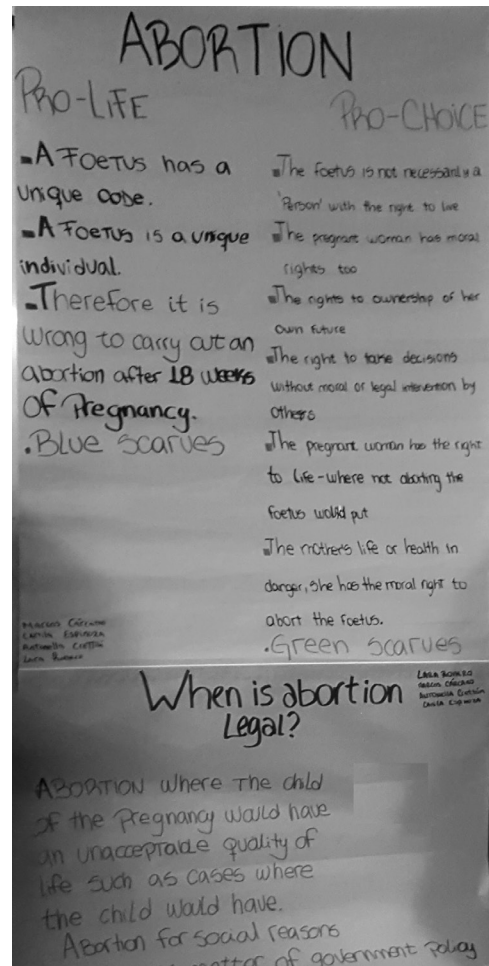 ABORTION
PRO-LIFE
A FOETUS has a
unique CODE.
A FOETUS IS a unique
individual.
Therefore it is
wrong to carry out an
abortion after 18 weeks
OF Pregnancy.
Blue scarves
PRO-CHOICE
The foetus is not necessarily a
'Person' with the right to live
The pregnant woman has moral
rights too
The rights to ownership of her
own future
The right to take decisions
without moral or legal intervention by
others
The pregnant woman has the right
to life-where not aborting the
foetus would put
The mother's life or health in
danger, she has the moral right to
abort the foetus.
Green scarves
When is abortion
Legal?
ABORTION where The child
of the Pregnancy would have
an unacceptable quality of
life such as cases where
the child would have.
Abortion for social reasons
matter of government policy